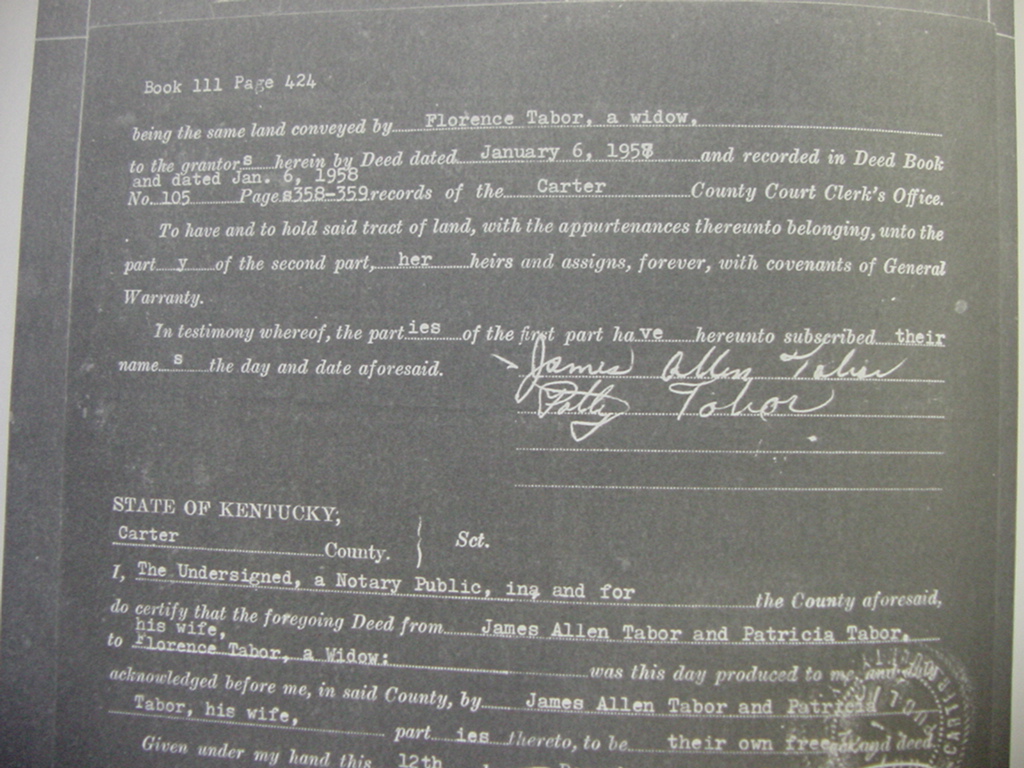 Book 111 Page 424
being the same land conveyed by Florence Tabor, a widow,
to the grantors herein by Deed dated January 6, 1958 and recorded in Deed Book
and dated Jan. 6, 1958
No. 105 Pages358-359 records of the Carter County Court Clerk's Office.
To have and to hold said tract of land, with the appurtenances thereunto belonging, unto the
party of the second part, her heirs and assigns, forever, with covenants of General
Warranty.
In testimony whereof, the parties of the first part have hereunto subscribed their
names the day and date aforesaid.
James Allen Tabor
Patty Tabor
STATE OF KENTUCKY,
Carter County. } Sct.
I, The Undersigned, a Notary Public, in and for the County aforesaid,
do certify that the foregoing Deed from James Allen Tabor and Patricia Tabor,
his wife,
to Florence Tabor, a Widow: was this day produced to me, and duly
acknowledged before me, in said County, by James Allen Tabor and Patricia
Tabor, his wife, parties thereto, to be their own free and deed
Given under my hand this 12th